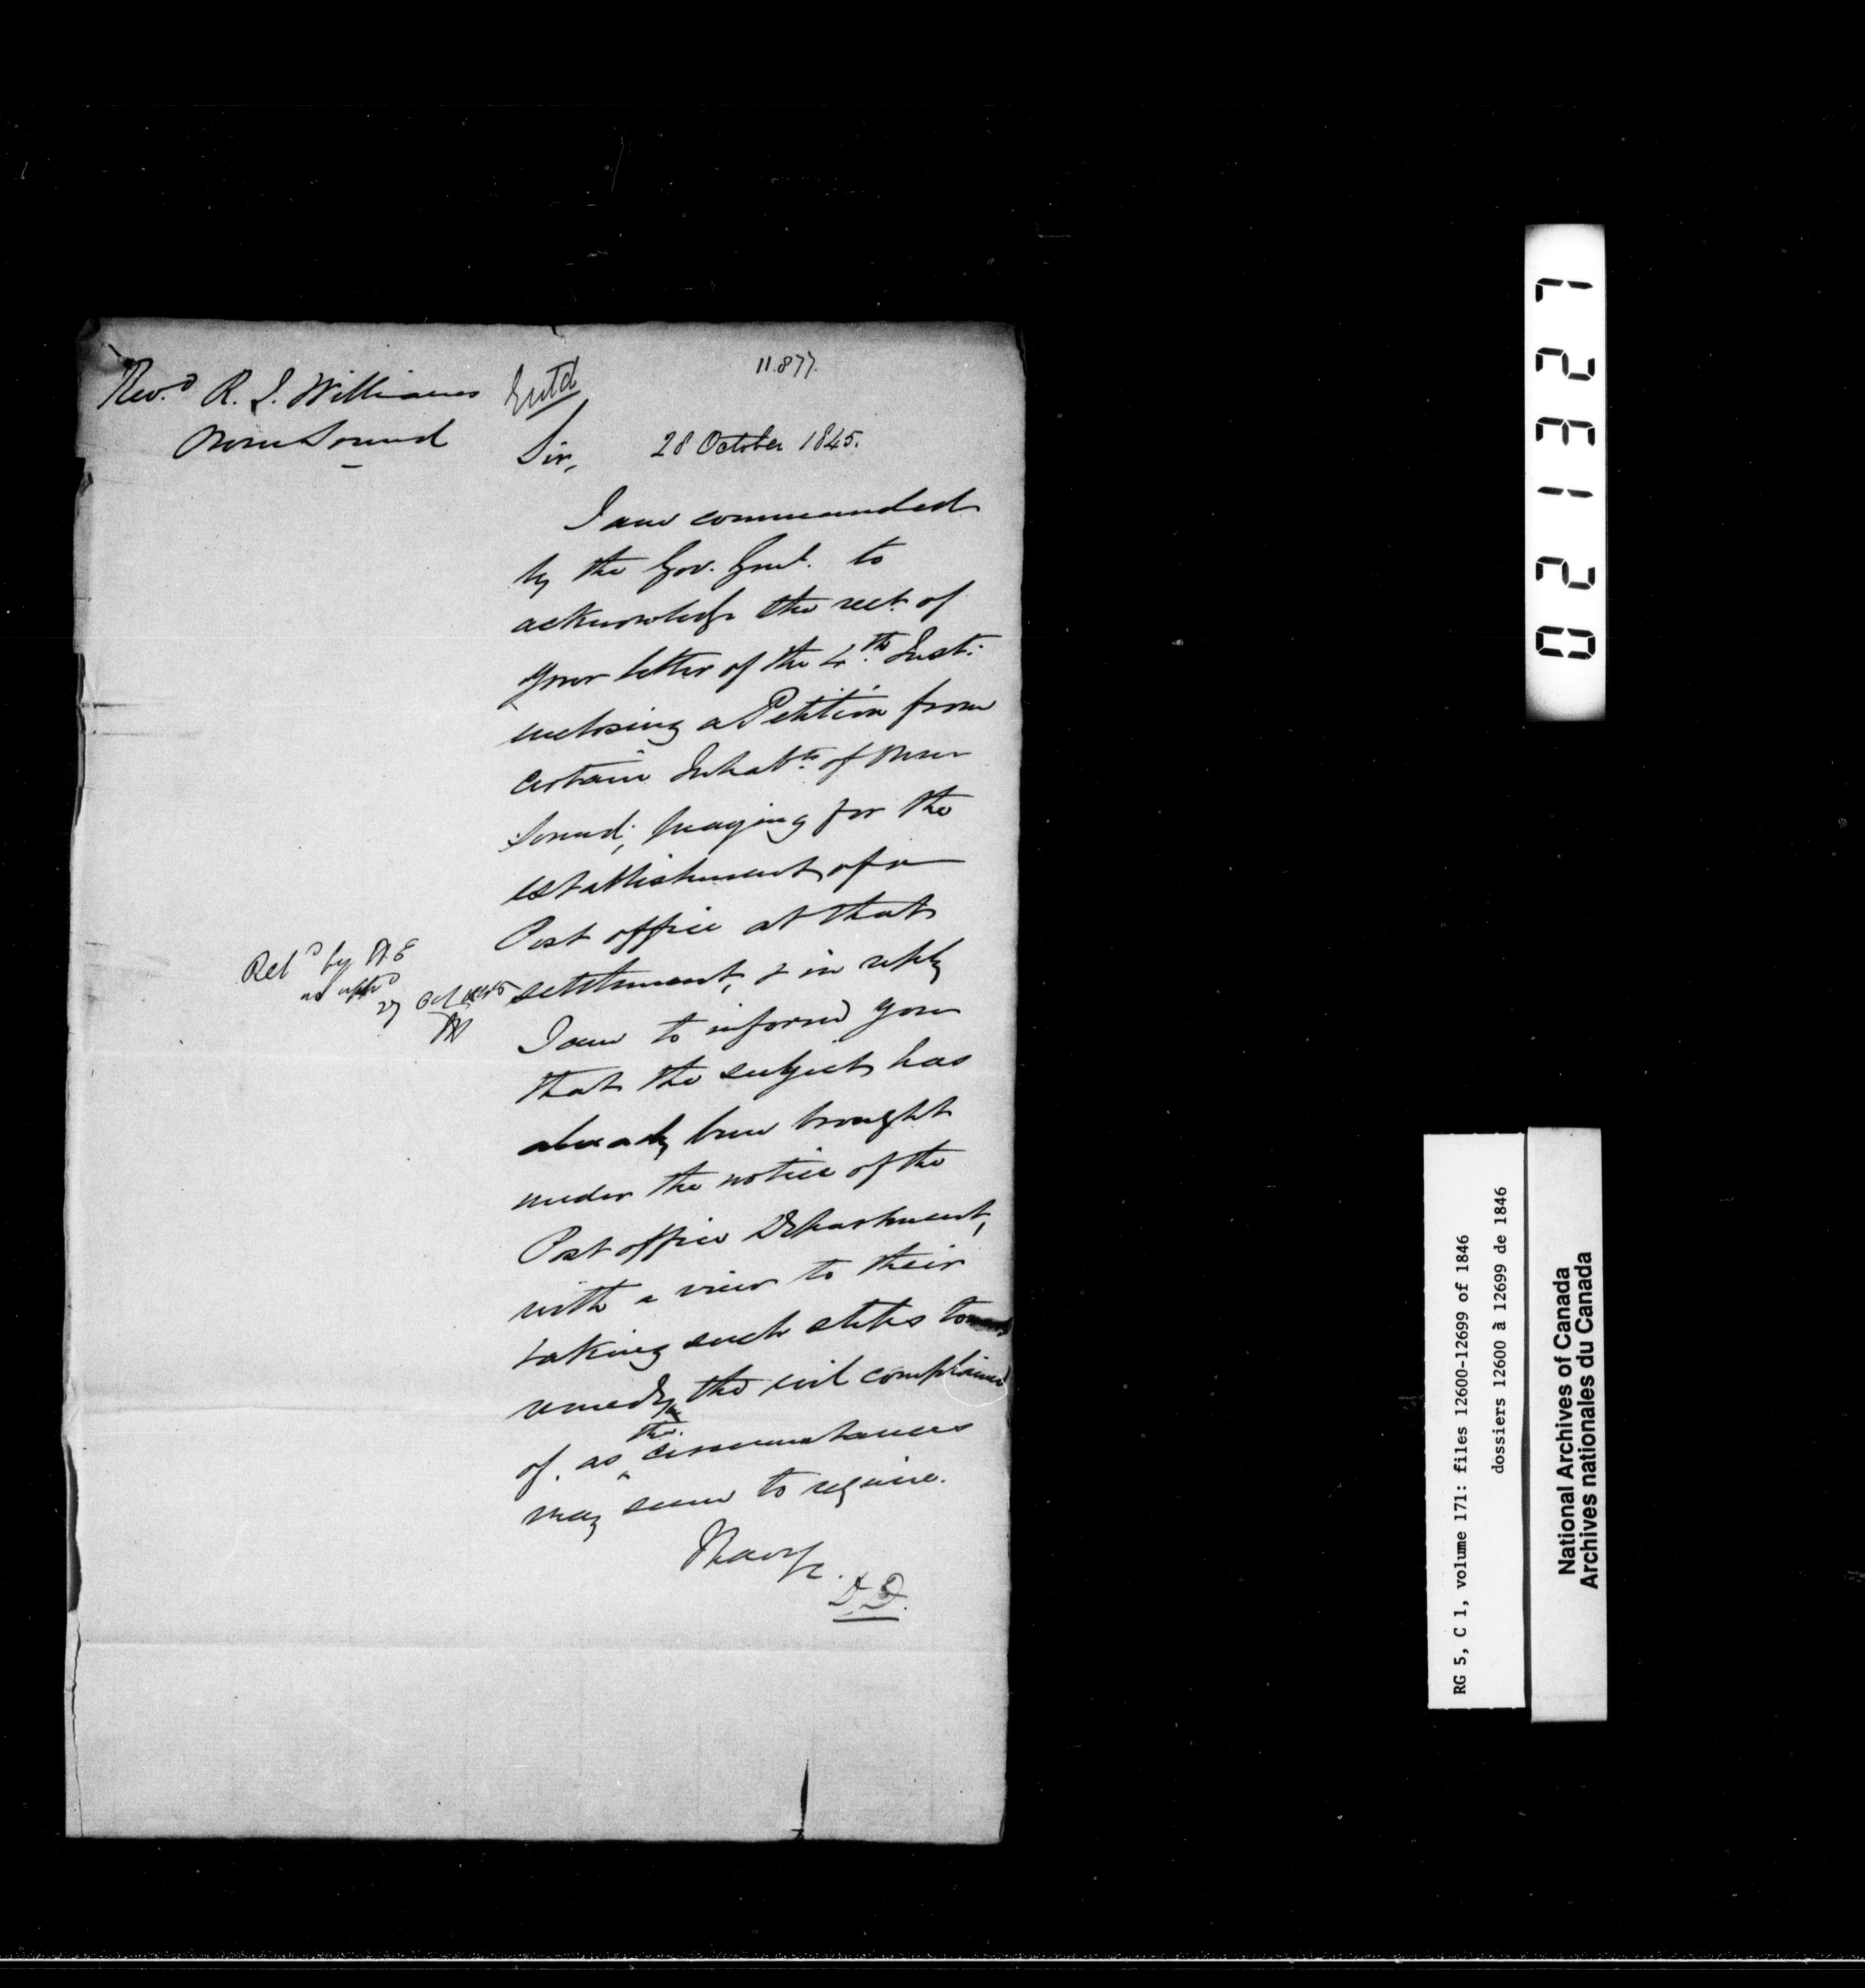 11.877.
Rev.d R. J. Williams
Owen Sound
Entd
Sir,
28 October 1845.
I am commanded
by the Gov. Genl. to
acknowledge the rect. of
your letter of the 4.th Inst.
enclosing a Petition from
certain Inhabts. of Owen
Sound, praying for the
establishment of a
Post office at that
settlement, & in reply
I am to inform you
that the subject has
already been brought
under the notice of the
Post office Department,
with a view to their
taking such steps to
remedy the evil complained
of, as the circumstances
may seem to require.
I have &c.
D.D.
Retd by H. E
as appd
27 Oct 1845
021327
RG 5, C 1, volume 171: files 12600-12699 of 1846
dossiers 12600 à 12699 de 1846
National Archives of Canada
Archives nationales du Canada